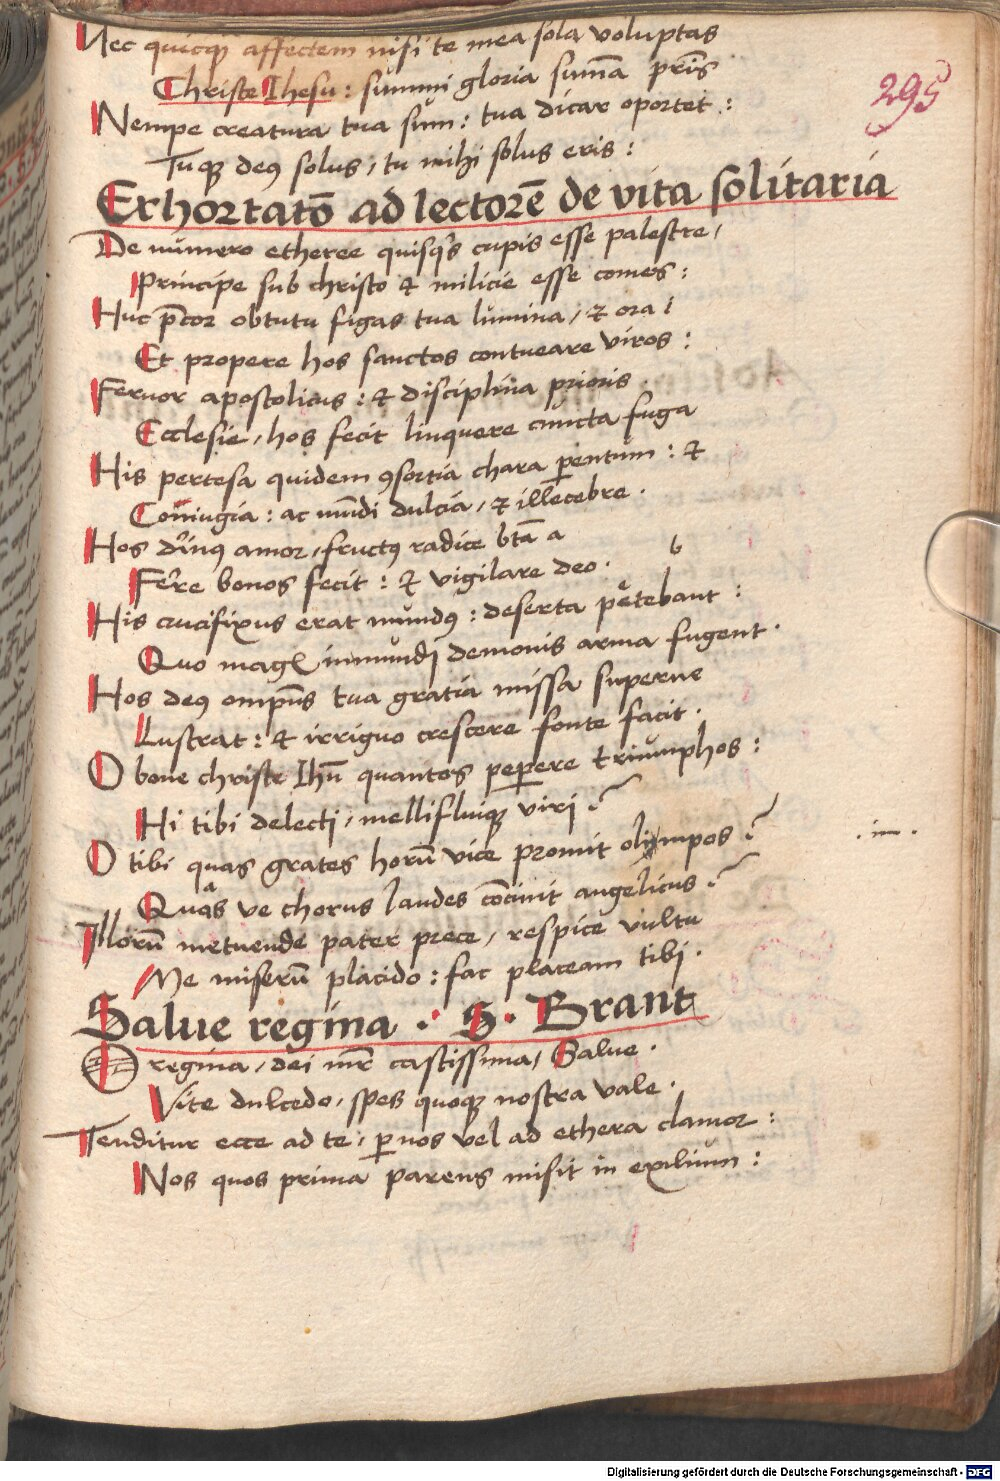 Nec quicq̃ affectem nisi te mea sola voluptas
Christe Ihesu : summi gloria sum̃a pr̃is
295
Nempe creatura tua sum : tua dicar oportet :
Tuqꝫ deꝰ solus, tu mihi solus eris :
Exhortatō ad lectorē de vita solitaria
De numero etheree quisq̃s cupis esse palestre,
Principe sub christo & milicie esse comes :
Huc p̄cor obtutu figas tua lumina, & ora :
Et propere hos sanctos contueare viros :
Feruor apostolicus : & disciplina prioris .
Ecclesie, hos fecit linquere cuncta fuga
His pertesa quidem ꝯsortia chara parentum : &
Coniugia : ac mūdi dulcia, & illecebre .
Hos diuinꝰ amor, fructꝰ radice bt̄a a
Ferre bonos fecit : & vigilare deo .
b
His crucifixus erat mundꝰ : deserta petebant :
Quo magꝭ inmundi demonis arma fugent .
Hos deꝰ omp̄ns tua gratia missa superne
Lustrat : & irriguo crescere fonte facit .
O bone christe Ihū quantos peperere triumphos :
Hi tibi delecti, mellifluiqꝫ viri ?
O tibi quas grates horū vice promit olympos ?
Quas ve chorus laudes cōcinit angelicus ?
Illorū metuende pater prece, respice vultu
Me miserū placido : fac placeam tibi .
Salue regina . S. Brant
O regina, dei mr̄ castissima, Salue .
Vite dulcedo, spes quoqꝫ nostra vale .
Tenditur ecce ad te, ꝑ nos vel ad ethera clamor :
Nos quos prima parens misit in exilium :
Digitalisierung gefördert durch die Deutsche Forschungsgemeinschaft - DFG